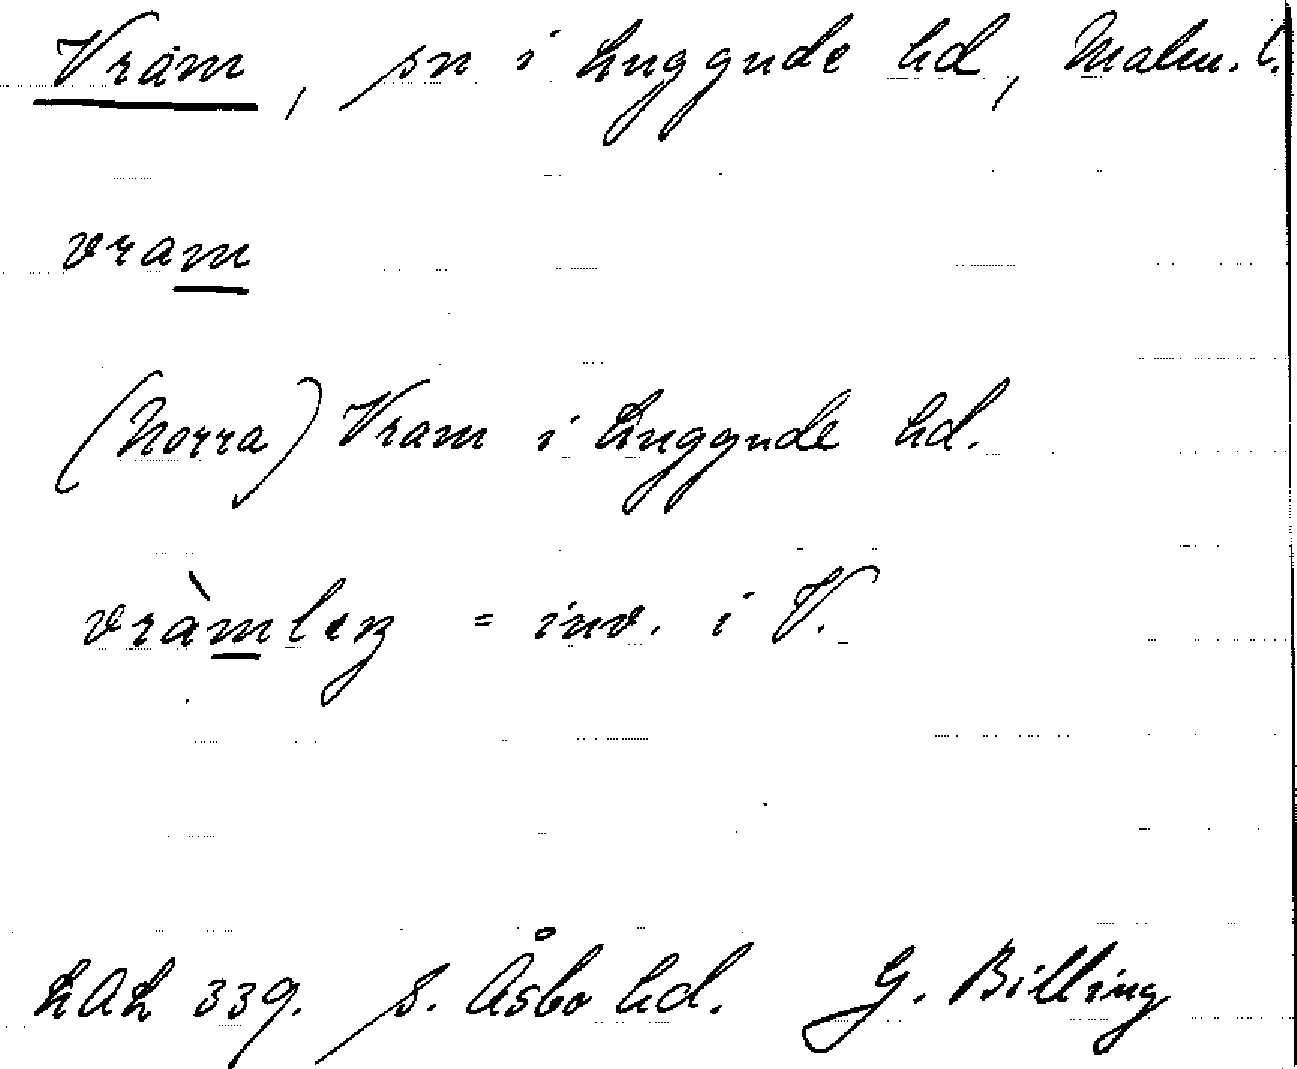 Vram, sn i Luggude hd, Malm. l.
vram
(Norra) Vram i Luggude hd.
vràmlɩŋ = inv. i V.
LAL 339. S. Åsbo hd. G. Billing